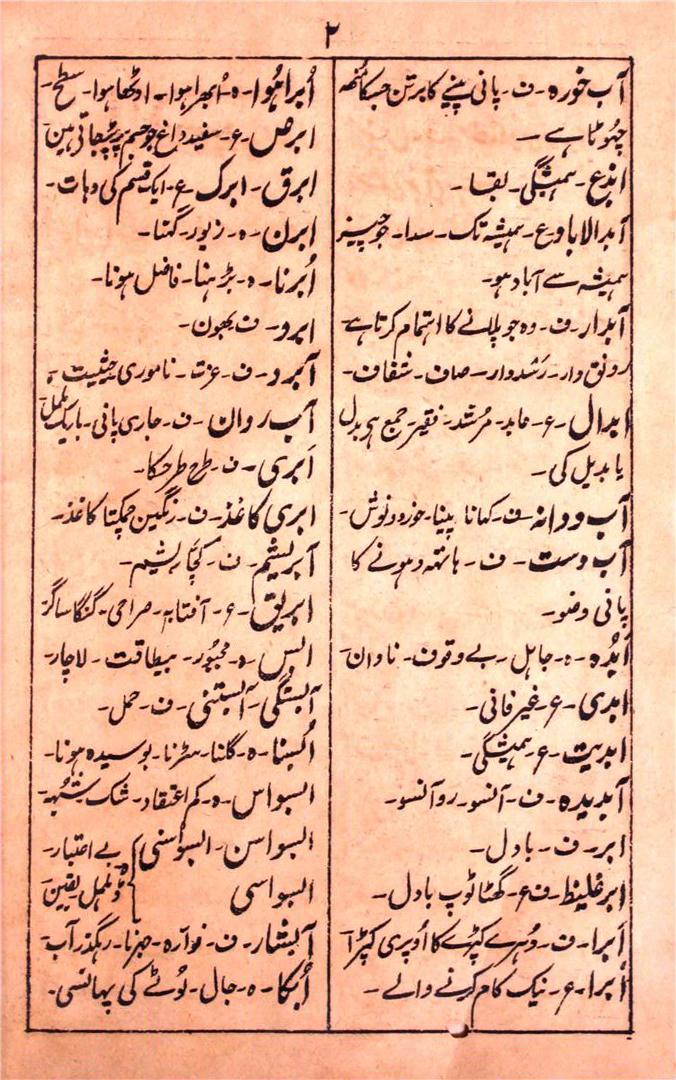 ۲
آب خورہ - ف - پانی پینے کا برتن جسکا منھ
چھوٹا ہے -
ابد ع - ہمیشگی - بقا -
ابدالاباد ع - ہمیشہ تک - سدا - جو چیز
ہمیشہ سے آباد ہو -
آبدار - ف - وہ جو پلانے کا اہتمام کرتا ہے -
رونق دار - صاف - شفاف -
ابدال - ع - عابد - مرشد - فقیر - جمع ہے بدل
یا بدیل کی -
آب ودانہ - ف - کہانا پینا - خورونوش -
آب دست - ف - ہاتھہ دہونے کا
پانی وضو -
اَبُدہ - ہ - جاہل - بے وقوف - نادان -
ابدی - ع - غیر فانی -
ابدیت - ع - ہمیشگی -
آبدیدہ - ف - آنسو - روآنسو -
ابر - ف - بادل -
ابرغلیظ - ف ع - گھٹاٹوپ بادل -
اَبرا - ف - دُہرے کپڑے کا اُوپری کپڑا -
اَبرا - ع - نیک کام کرنے والے -
اُبراہُوا - ہ - اُبھراہوا - اوٹھاہوا - سطح -
ابرص - ع - سفید داغ جو جسم پر پڑجاتے ہین
ابرق - ابرک - ع - ایک قسم کی دہات -
ابرن - ہ - زیور - گہنا -
اُبرنا - ہ - بڑہنا - فاضل ہونا -
ابرو - ف بھون -
آبرو - ف - عزت - ناموری - حیثیت -
آب روان - ف - جاری پانی - باریک ململ
اَبری - ف - طرح طرحکا -
ابری کاغذ - ف - رنگین چمکتا کاغذ -
آبریشم - ف - کچّا ریشم -
ابریق - ع - آفتابہ - صراحی - گنگاساگر
ابس - ہ - مجبُور - بیطاقت - لاچار -
آبستگی - آبستنی - ف - حمل -
اُبسنا - ہ - گلنا - سڑنا - بوسیدہ ہونا -
ابسواس - ہ - کم اعتقاد - شک - شبہہ -
ابسواسن - ابسوسنی } ہ بے اعتبار -
ابسواسی } یقین
آبشار - ف - فوّارہ - جہرنا - رہگذر آب -
اُبکا - ہ - جال - لوٹے کی پہانسی -